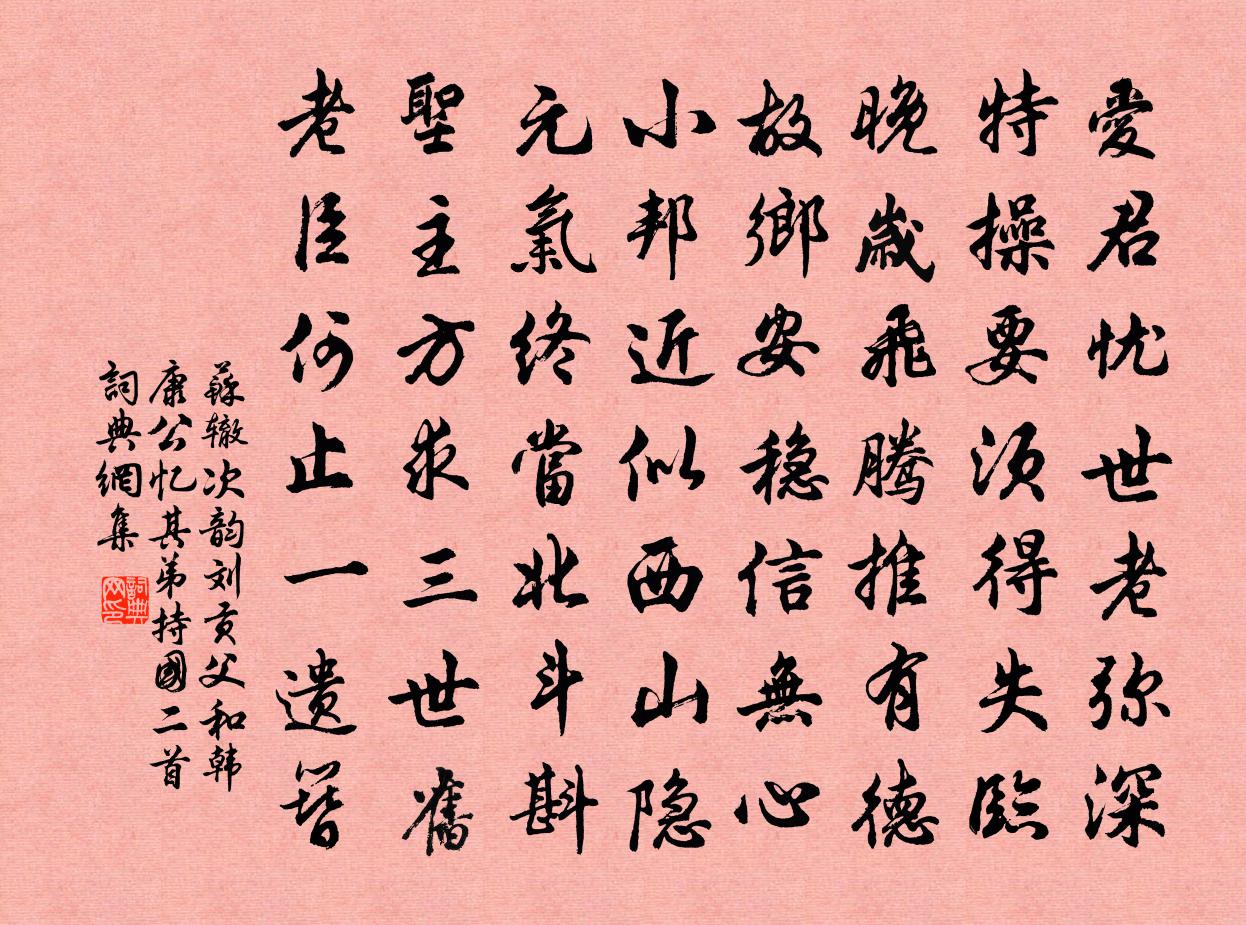 愛君忧世老弥深
特操要须得失臨
晚歲飛騰推有德
故鄉安穏信無心
小邦近似西山隐
元氣終當北斗斟
聖主方求三世舊
老臣何止一遗簪
蘇辙次韵刘贡父和韩
康公忆其弟持國二首
詞典網集
詞典
网印